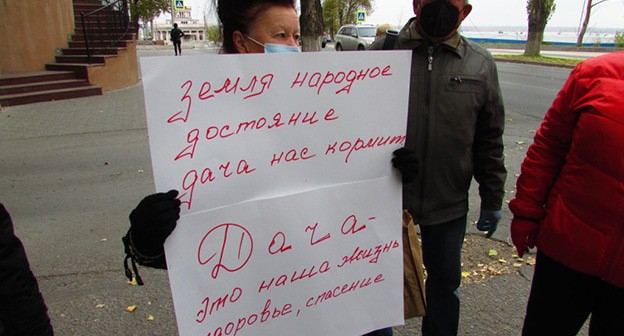 Земля народное
достояние
дача нас кормит
Дача-
это наша жизнь
здоровье, спасение